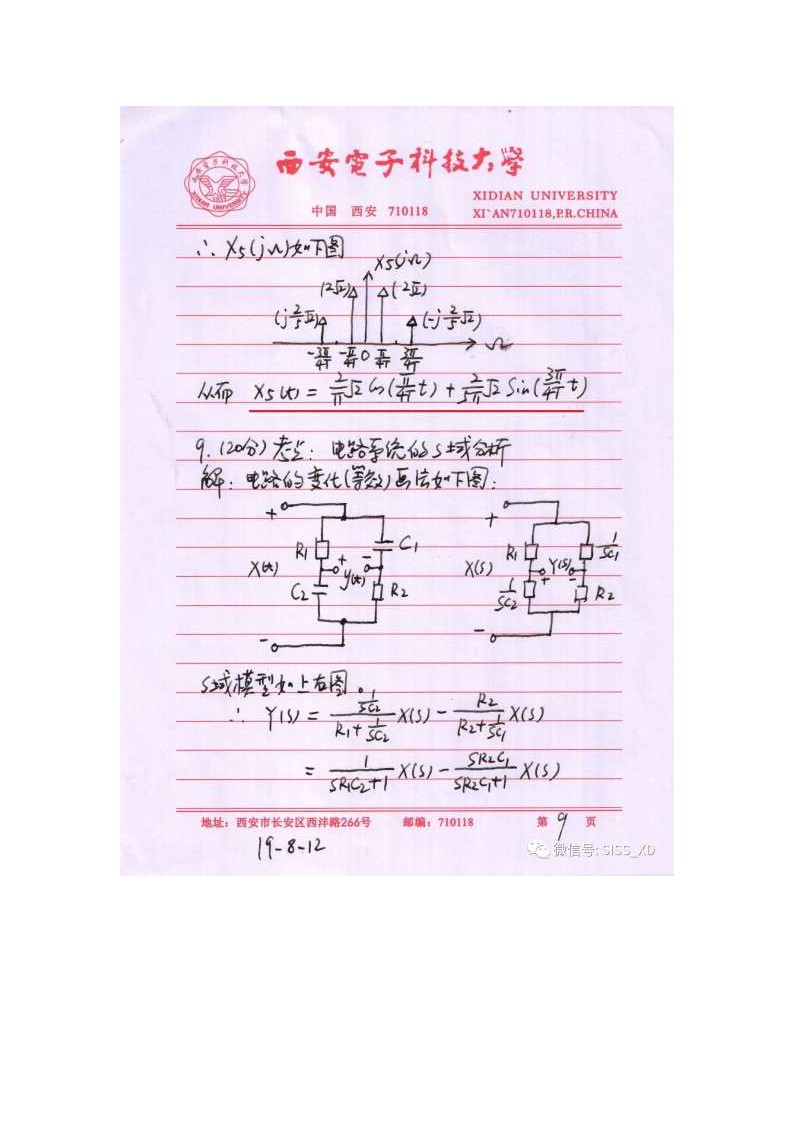 西安電子科技大學
XIDIAN UNIVERSITY
中国 西安 710118
XI`AN710118,P.R.CHINA
XIDIAN UNIVERSITY
∴ X5(jΩ)如下图
X5(jΩ)
(2√2) (2√2)
(j2/5√2) (-j2/5√2)
-3π/4T -π/4T 0 π/4T 3π/4T Ω
从而 X5(t) = 2/π√2 Cos(π/4T t) + 2/5π√2 Sin(3π/4T t)
9. (20分) 考点: 电路系统的S域分析
解: 电路的变化(等效)画法如下图:
+ R1 C1 + - X(t) y(t) C2 R2 -
+ R1 1/SC1 X(s) Y(s) + - 1/SC2 R2 -
S域模型如上右图。
∴ Y(s) = (1/SC2)/(R1+1/SC2) X(s) - R2/(R2+1/SC1) X(s)
= 1/(SR1C2+1) X(s) - SR2C1/(SR2C1+1) X(s)
地址: 西安市长安区西沣路266号 邮编: 710118 第 9 页
19-8-12
微信号: SISS_XD